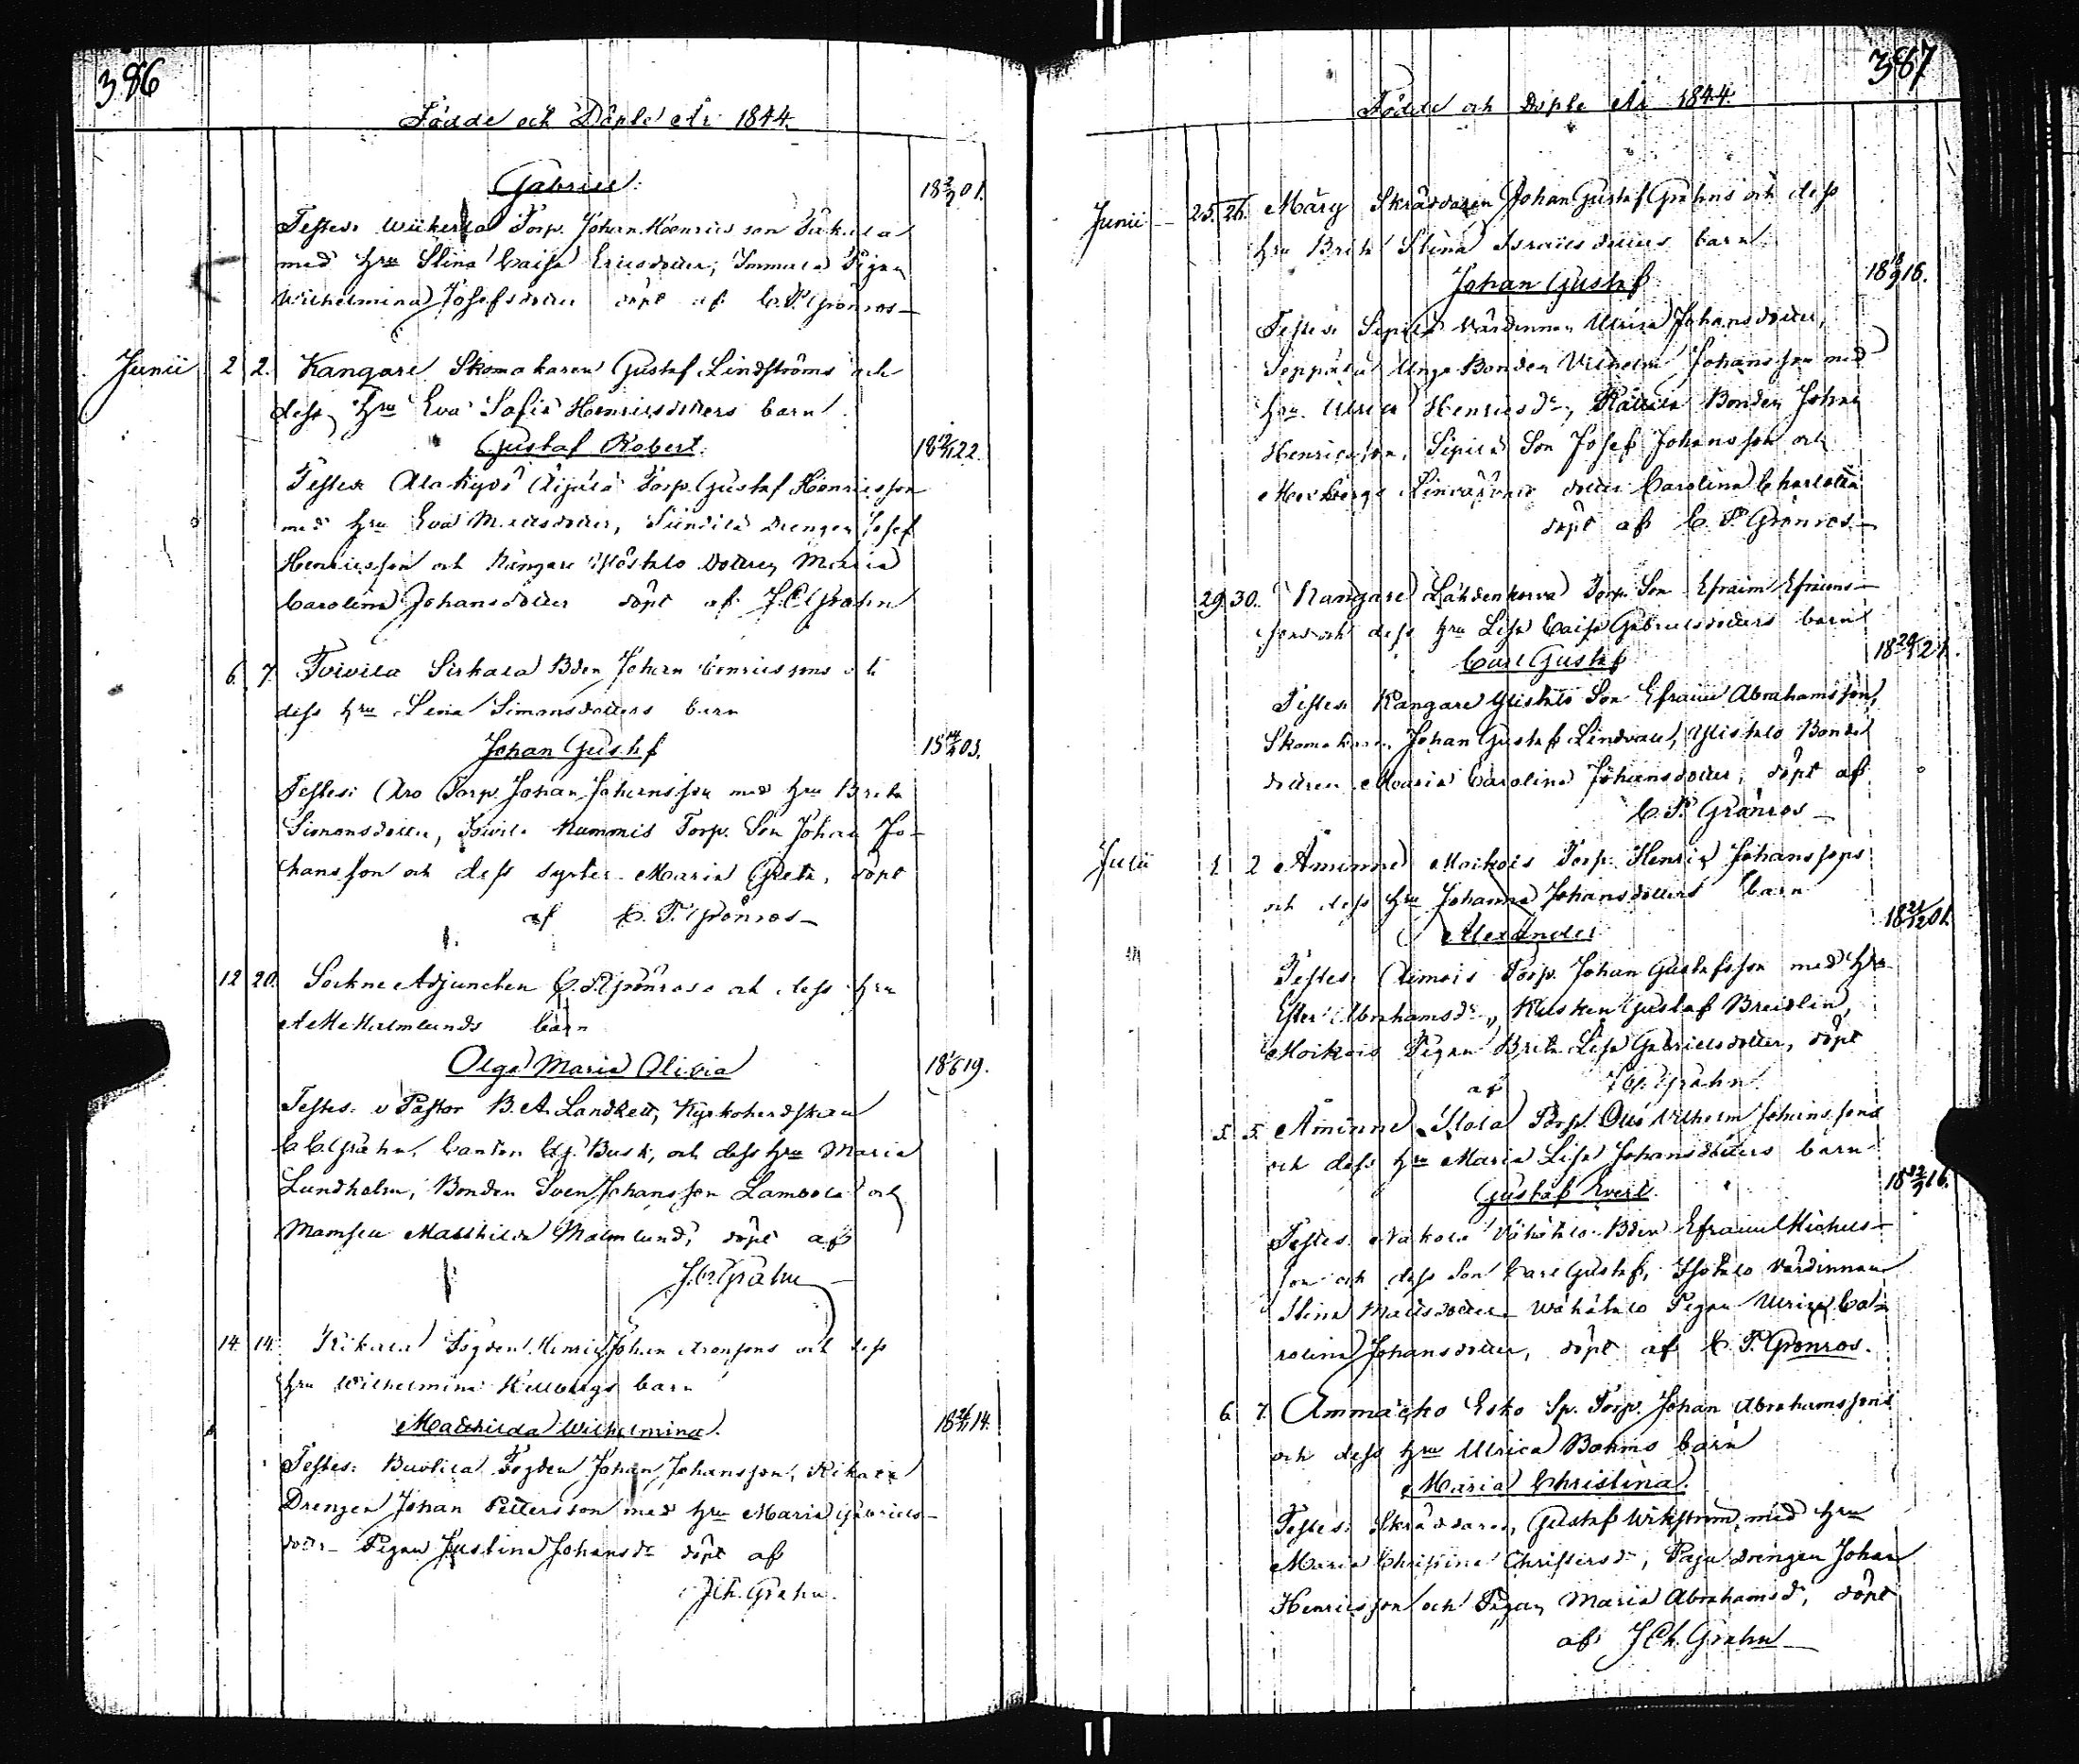 386
Födde och Döpte År 1844.
Gabriel.
18 2/9 01.
Testes: Torp. Johan Henricsson
med hru Stina Caisa Ericsdotter; Pigan
Wilhelmina Josefsdotter döpt af C. F. Grönros
Junii 2 2. Kangare Skomakaren Gustaf Lindströms och
dess hru Eva Sofia Henricsdotters barn
Gustaf Robert.
22
Testes Torp. Gustaf Henricsson
med hru Eva Mattsdotter, drengen Josef
Henricsson och Kangare dottren Maria
Carolina Johansdotter döpt af J. C. Grahn
6. 7. Tvivila Sirkala Bden Johan Henricssons och
dess hru Lena Simonsdotters barn
Johan Gustaf
03.
Testes: Aro Torp. Johan Johansson med hru Brita
Simonsdotter, Nummis Torp. Son Johan Jo-
hansson och dess syster Maria Greta, döpt
af C. F. Grönros
12 20. Sockne Adjuncten C. F. Grönroos och dess hru
A M Malmlunds barn
Olga Maria Olivia
18 1/6 19.
Testes: v Pastor B. A. Landzett, Kyrkoherdskan
C C Grahn, Cantor Busk, och dess hru Maria
Lundholm, Bonden Sven Johansson Lambola och
Mamsell Mathilda Malmlund, döpt af
J. C. Grahn
14. 14. Rikala Fogden Henric Johan Aronsons och dess
hru Wilhelmina Hellbergs barn
Mathilda Wilhelmina.
14.
Testes: Fogden Johan Johansson, Rikala
Drengen Johan Pettersson med hru Maria Gabriels-
dotter Pigan Justina Johansdr döpt af
J. Ch. Grahn.
387
Födde och Döpte År 1844.
Junii 25. 26. Märy Skräddaren Johan Gustaf Grahns och dess
hru Brita Stina Israelsdotters barn
Johan Gustaf
16.
Testes Sipilä Värdinnan Ulrica Johansdotter,
Seppälä Unge Bonden Vilhelm Johansson med
hru Ulrica Henricsdr, Bonden Johan
Henricsson, Sipilä Son Josef Johansson och
dotter Carolina Charlotta
döpt af C. F. Grönros
29. 30. Kangare Lähdenkorva Torp. Son Efraim Efraims-
sons och dess hru Lisa Caisa Gabrielsdotters barn
Carl Gustaf
21.
Testes Kangare Son Efraim Abrahamsson,
Skomakaren Johan Gustaf Lindvall, Bonde
dottren Maria Carolina Johansdotter, döpt af
C. F. Grönros
Julii 1 2 Åminne Moikois Torp. Henric Johanssons
och dess hru Johanna Johansdotters barn
Alexander
18 21/12 01.
Testes: Torp. Johan Gustafsson med hru
Ester Abrahamsdr, Kusken Gustaf Breidlin,
Moikois Pigan Brita Lisa Gabrielsdotter, döpt
af Grahn
5. 5. Åminne Torp. Otto Vilhelm Johanssons
och dess hru Maria Lisa Johansdotters barn
Gustaf Evert.
16.
Testes Bden Efraim Michels-
son och dess Son Carl Gustaf, Värdinnan
Stina Mattsdotter Pigan Ulrica Ca-
rolina Johansdotter, döpt af C. F. Grönros.
6. 7. Ammäcko Esko Sp. Torp. Johan Abrahamssons
och dess hru Ulrica Bohms barn
Maria Christina.
Testes: Skräddaren, Gustaf Wikström, med hru
Maria Christina Christersdr, Paju drengen Johan
Henricsson och Pigan Maria Abrahamsd. döpt
af J Ch. Grahn